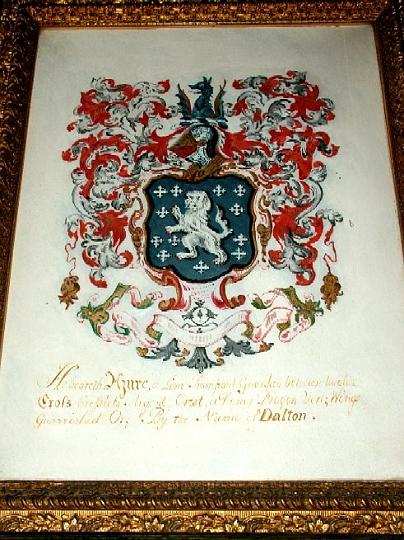 He beareth Azure, a Lion Rampant Guardan between twelve
Cross Crosslets Argent, Crest, a Demy Dragon Vert, Wings
Garnished Or, By the Name of Dalton.